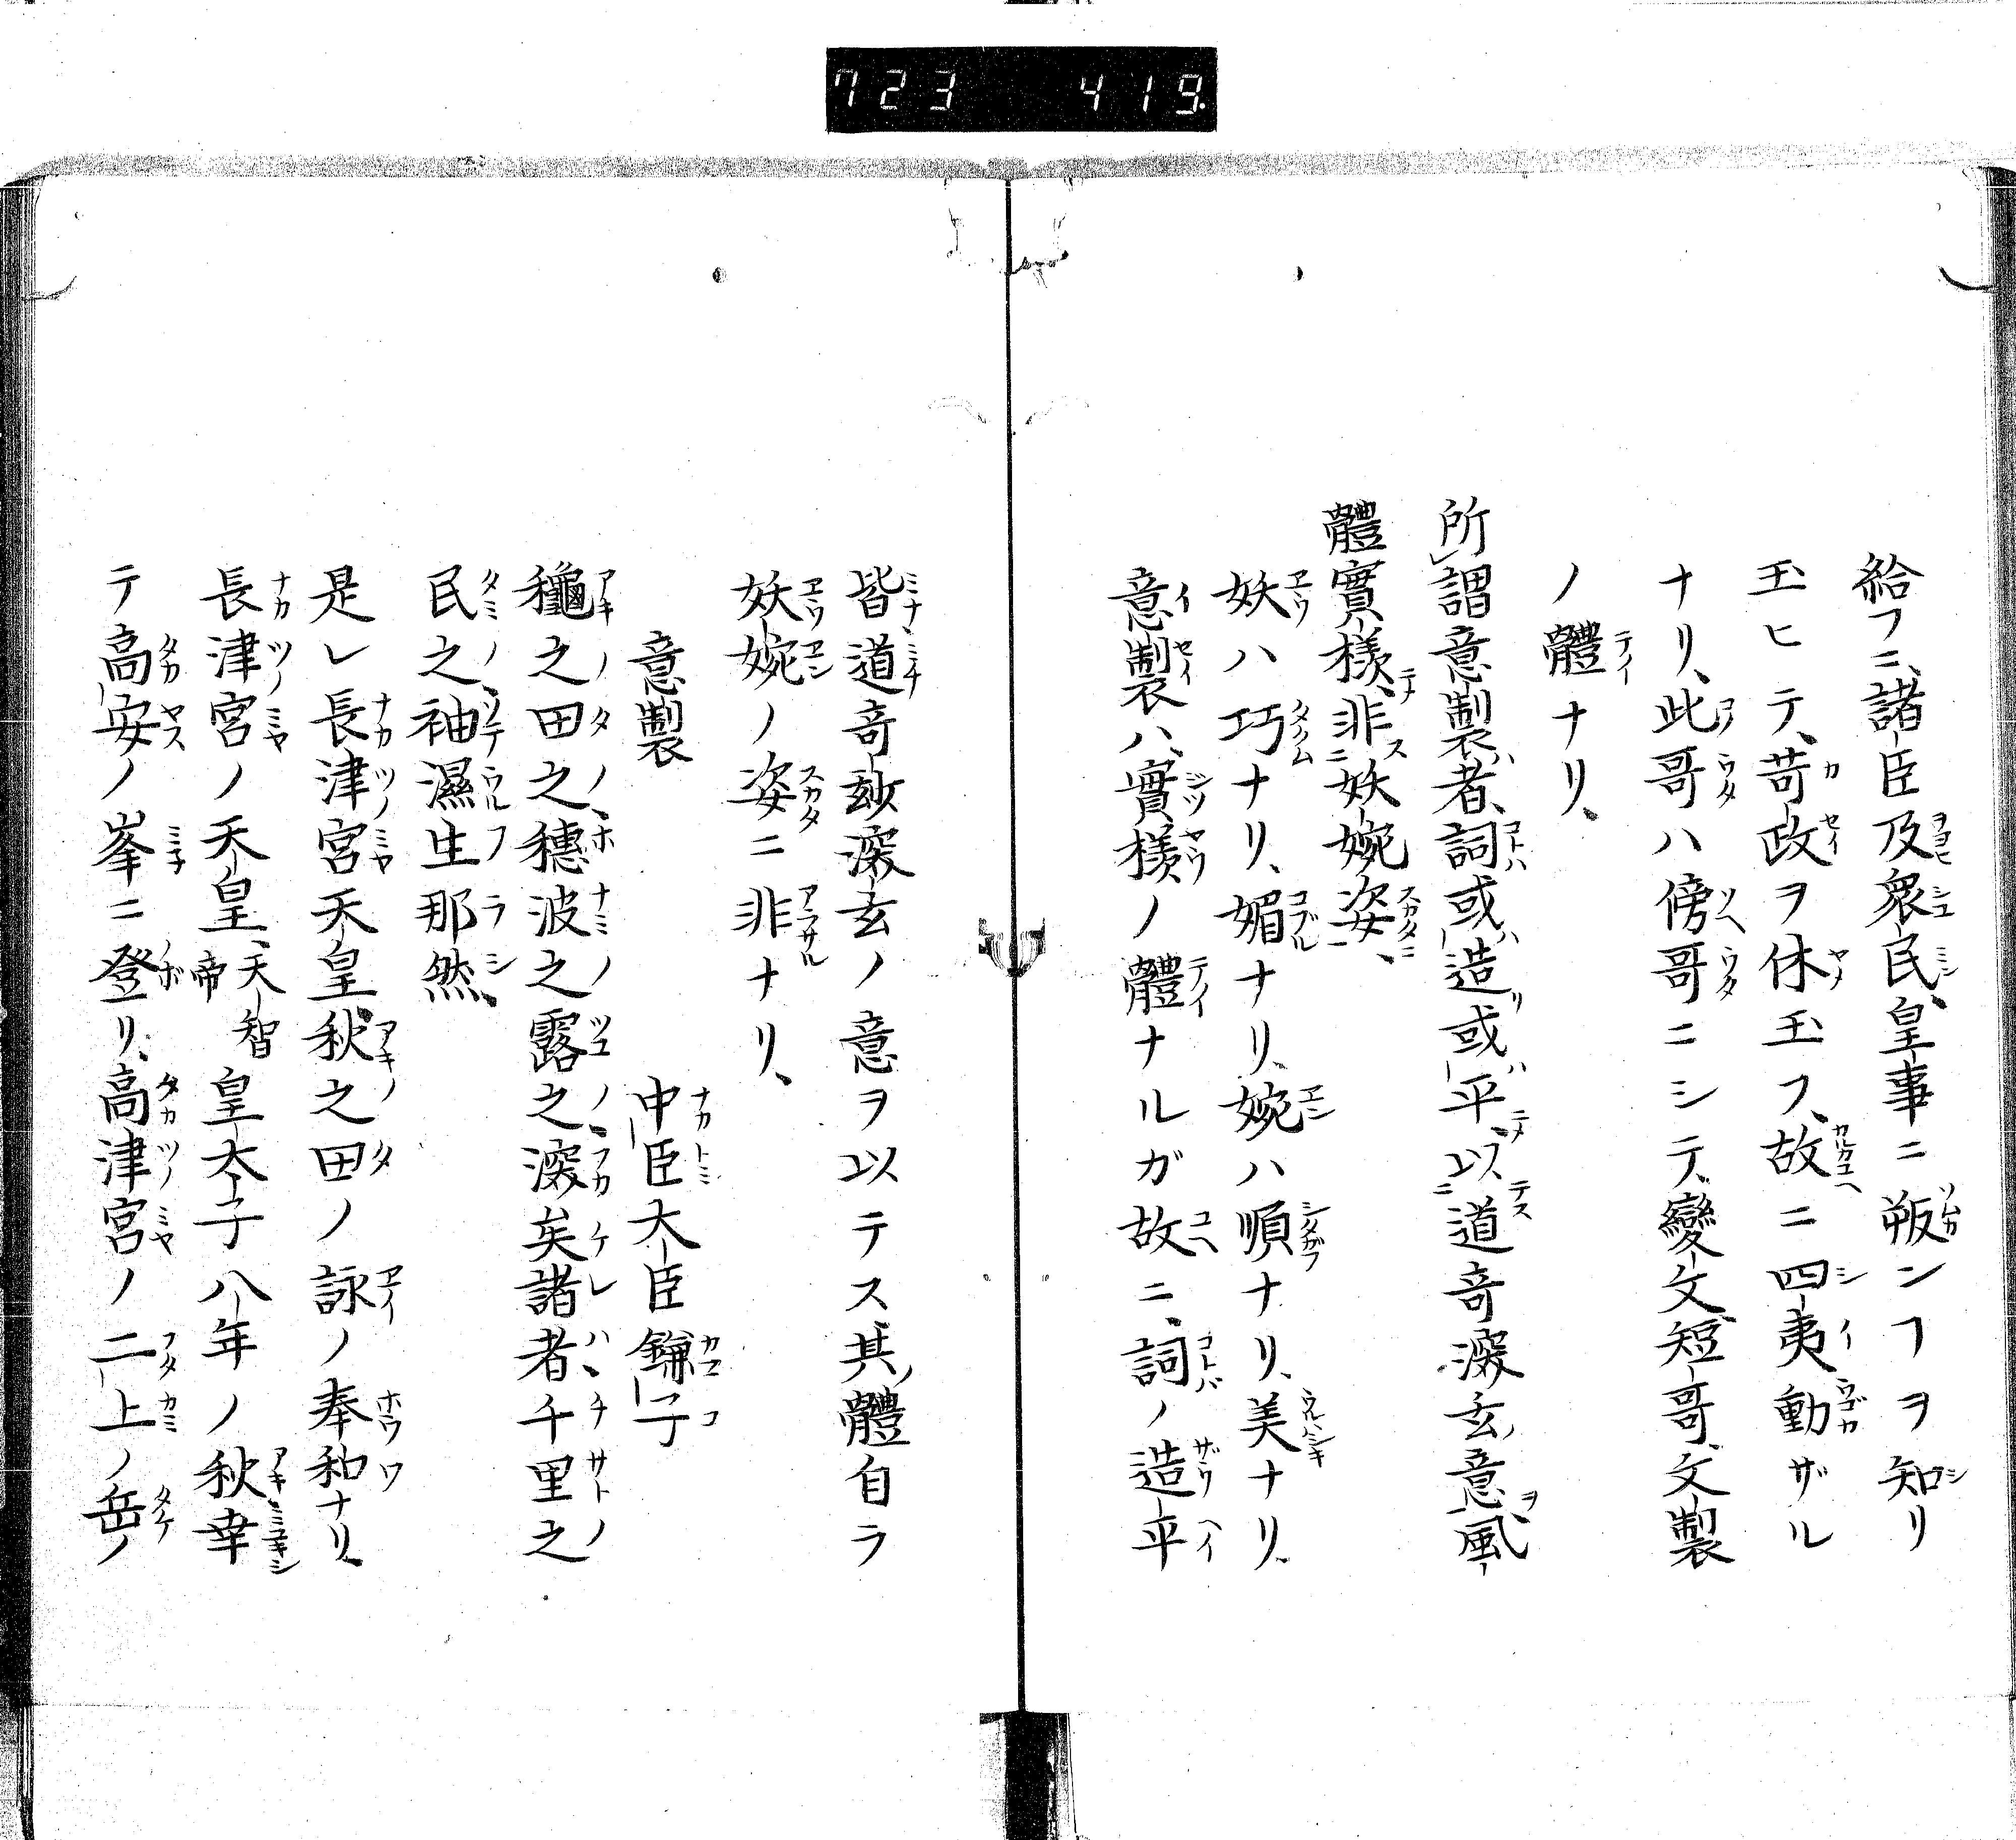 723 419
給フニ、諸臣及衆民、皇事ニ叛ンヿヲ知リ
玉ヒテ、苛政ヲ休玉フ、故ニ四夷動ザル
ナリ、此哥ハ傍哥ニシテ、變文、短哥、文製
ノ體ナリ、
所謂意製者、詞或造或平、以道奇深玄意風
體實様、非妖婉姿、
妖ハ巧ナリ、媚ナリ、婉ハ順ナリ、美ナリ、
意製ハ、實様ノ體ナルガ故ニ、詞ノ造平
皆道奇玅深玄ノ意ヲ以テス、其體自ラ
妖婉ノ姿ニ非ナリ、
意製 中臣大臣鎌子
龝之田之穗波之露之深矣諸者千里之
民之袖濕生那然
是レ長津宮天皇、秋之田ノ詠ノ奉和ナリ、
長津宮ノ天皇、天智帝皇太子八年ノ秋幸
テ高安ノ峯ニ登リ、高津宮ノ二上ノ岳ノ